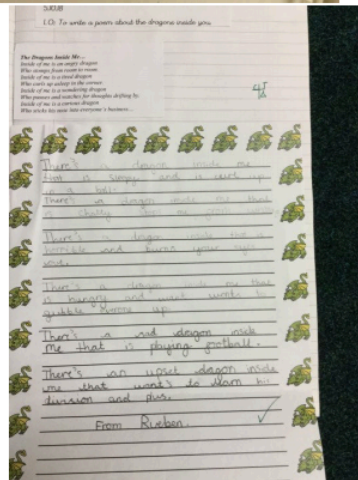 5.10.18
L.O: To write a poem about the dragons inside you.
The Dragons Inside Me...
Inside of me is an angry dragon
Who stomps from room to room.
Inside of me is a tired dragon
Who curls up asleep in the corner.
Inside of me is a wondering dragon
Who pauses and watches for thoughts drifting by.
Inside of me is a curious dragon
Who sticks his nose into everyone's business...
There's a dragon inside me
that is sleepy and is curlt up
in a ball.
There's a dragon inside me that
is chatty
There's a dragon inside that is
horrible and burns your eyes
There's a dragon inside me that
is hungry and
gubble up.
There's a dragon insid
me that is playing football.
There's an upset dragon inside
me that want's to learn his
division and plus.
From